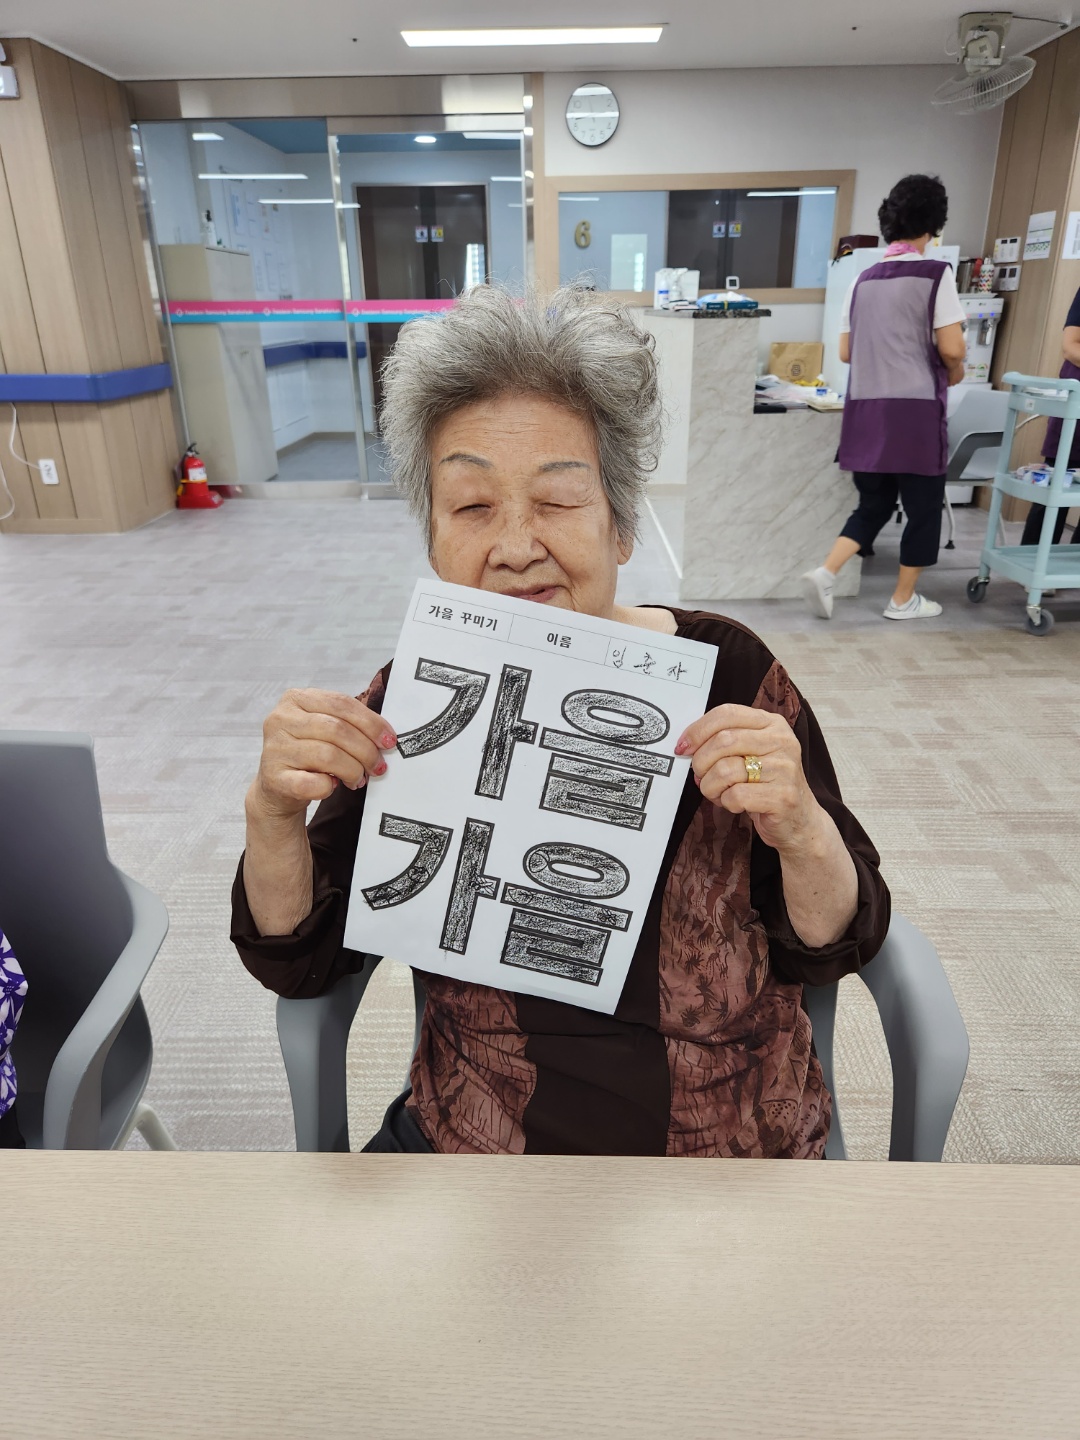 6
가을 꾸미기 이름 임춘자
가을
가을